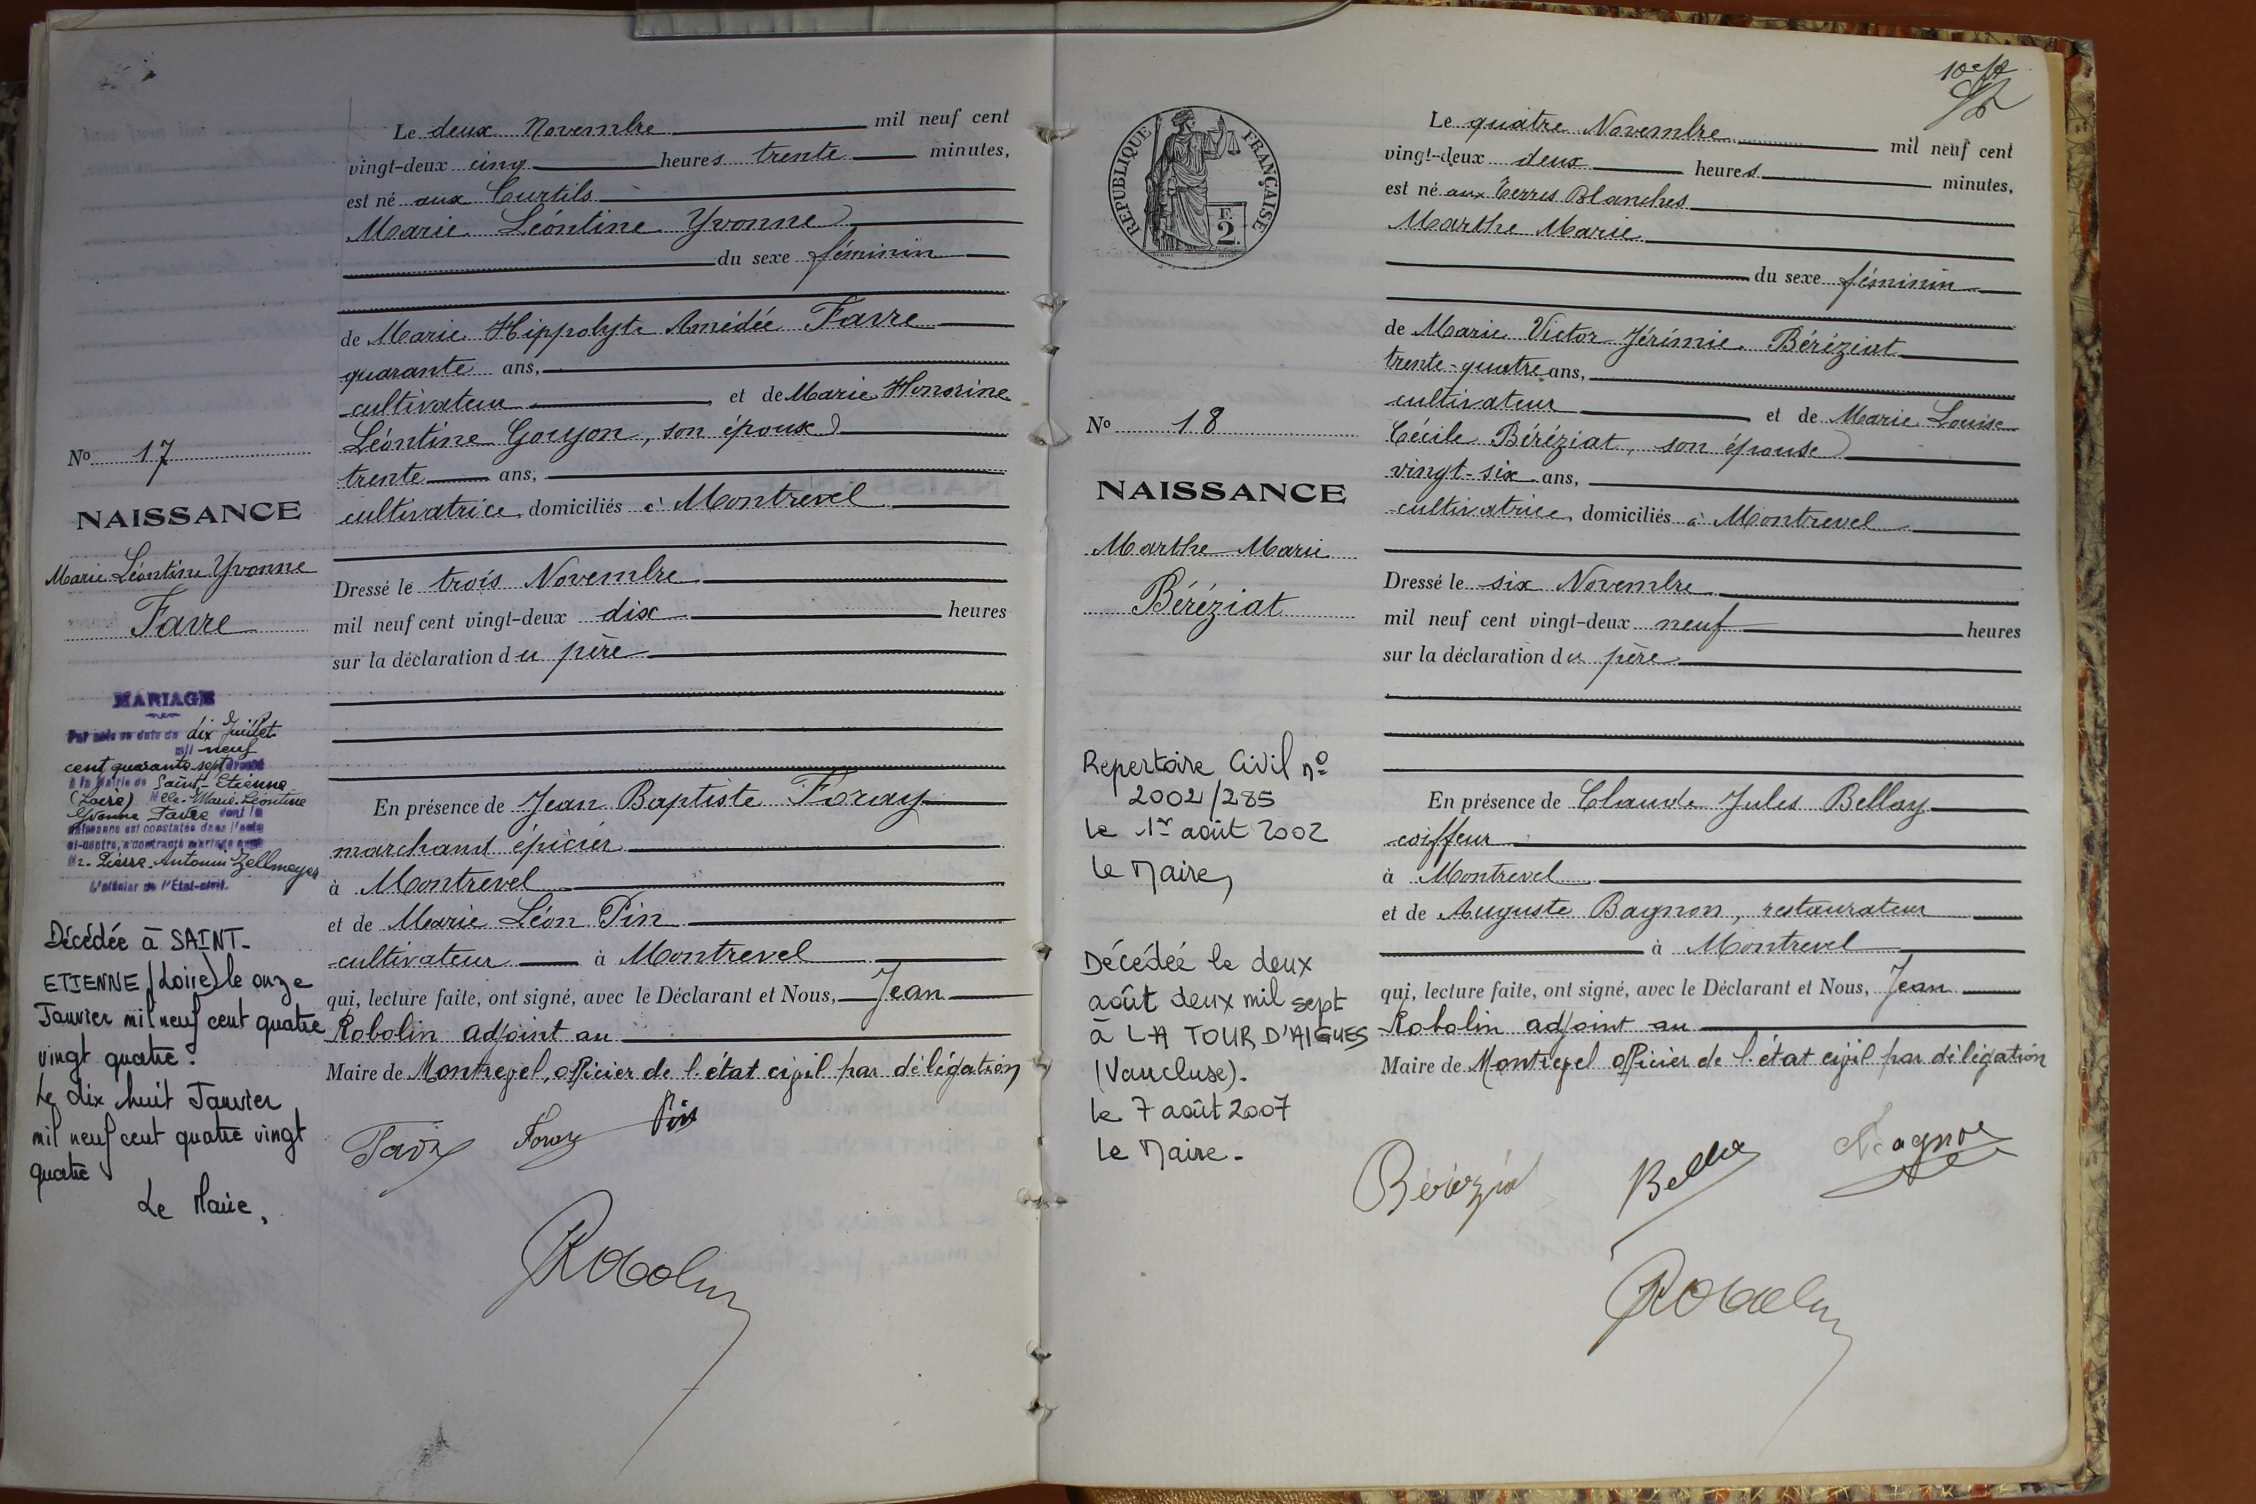 Le deux Novembre mil neuf cent
vingt-deux cinq heures trente minutes,
est né aux Curtils
Marie Léontine Yvonne
du sexe féminin
de Marie Hippolyte Amédée Favre
quarante ans,
cultivateur et de Marie Honorine
Léontine Gouyon, son épouse
trente ans,
cultivatrice domiciliés à Montrevel
Dressé le trois Novembre
mil neuf cent vingt-deux dix heures
sur la déclaration du père
En présence de Jean Baptiste Foray
marchand épicier
à Montrevel
et de Marie Léon Pin
cultivateur à Montrevel
qui, lecture faite, ont signé, avec le Déclarant et Nous, Jean
Robolin adjoint au
Maire de Montrevel, officier de l'état civil par délégation
Foray Pin
Robolin
No 17
NAISSANCE
Marie Léontine Yvonne
Favre
MARIAGE
Par acte en date du dix Juillet
mil neuf
cent quarante sept
à la Mairie de Saint-Etienne
(Loire) Melle Marie Léontine
Yvonne Favre dont la
naissance est constatée dans l'acte
ci-contre, a contracté mariage avec
Mr. Pierre Antonin Zellmeyer
L'officier de l'État-civil.
Décédée à SAINT-
ETIENNE (Loire) le onze
Janvier mil neuf cent quatre
vingt quatre.
Le dix huit Janvier
mil neuf cent quatre vingt
quatre
Le Maire,
REPUBLIQUE FRANÇAISE
F.
2.
Le quatre Novembre mil neuf cent
vingt-deux deux heures minutes,
est né aux Terres Blanches
Marthe Marie
du sexe féminin
de Marie Victor Jérémie Béréziat
trente-quatre ans,
cultivateur et de Marie Louise
Cécile Béréziat, son épouse
vingt-six ans,
cultivatrice domiciliés à Montrevel
Dressé le six Novembre
mil neuf cent vingt-deux neuf heures
sur la déclaration du père
En présence de Claude Jules Bellay
coiffeur
à Montrevel
et de Auguste Bagnon, restaurateur
à Montrevel
qui, lecture faite, ont signé, avec le Déclarant et Nous, Jean
Robolin adjoint au
Maire de Montrevel officier de l'état civil par délégation
Robolin
No 18
NAISSANCE
Marthe Marie
Béréziat
Repertoire Civil no
2002/285
le 1er août 2002
le Maire,
Décédée le deux
août deux mil sept
à LA TOUR D'AIGUES
(Vaucluse).
le 7 août 2007
le Maire.